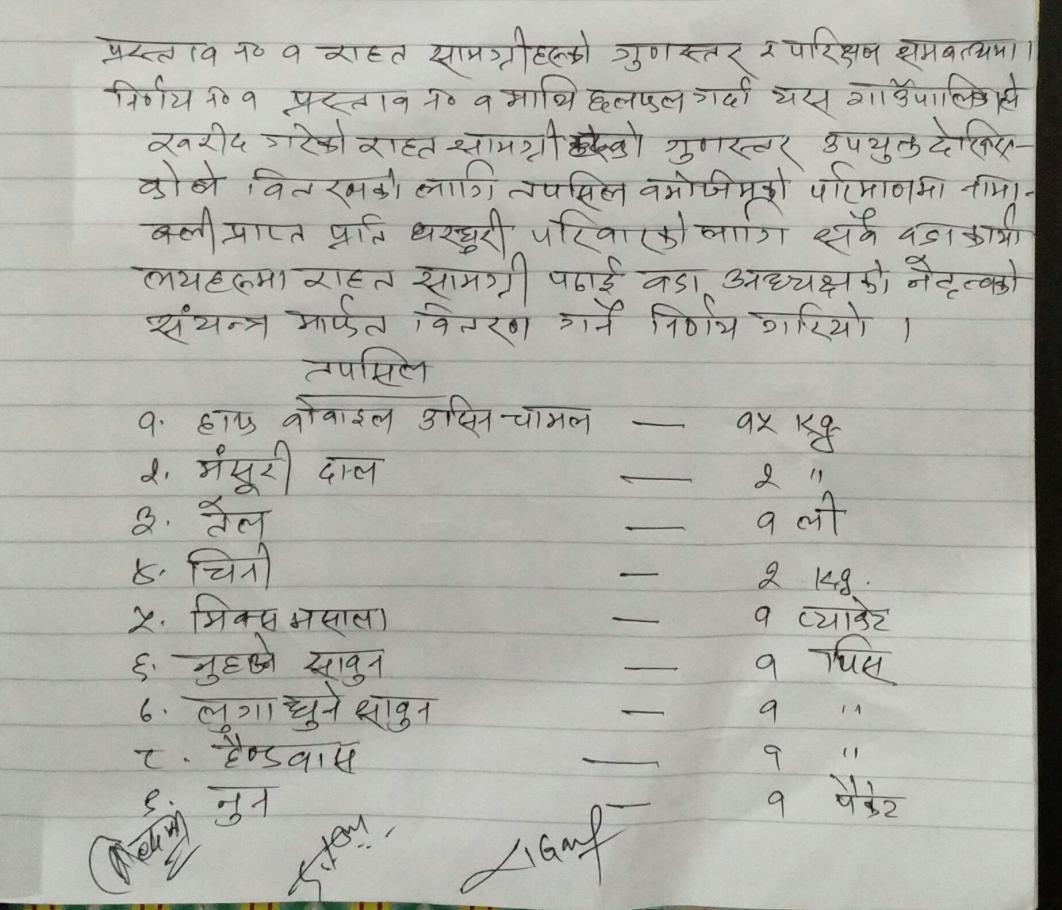 प्रस्ताव नं० १ राहत सामग्रीहरुको गुणस्तर र परिक्षण सम्बन्धमा।
निर्णय नं० १ प्रस्ताव नं० १ माथि छलफल गर्दा यस गाउँपालिकाले
खरीद गरेको राहत सामग्री हरुको गुणस्तर उपयुक्त देखिए-
कोले वितरणको लागि तपसिल वमोजिमको परिमाणमा नामा-
वली प्राप्त प्रति घरधुरी परिवारको लागि सवै वडा कार्या
लयहरुमा राहत सामग्री पठाई वडा अध्यक्षको नेतृत्वको
संयन्त्र मार्फत वितरण गर्ने निर्णय गरियो ।
तपसिल
१. हाफ वोवाइल उसिन चामल — १५ Kg
२. मंसूरी दाल — २ "
३. तेल — १ ली
४. चिनी — २ Kg.
५. मिक्स मसाला — १ प्याकेट
६. नुहाउने सावुन — १ पिस
७. लुगा धुने सावुन — १ "
८. हैण्डवास — १ "
९. नुन — १ पैकेट